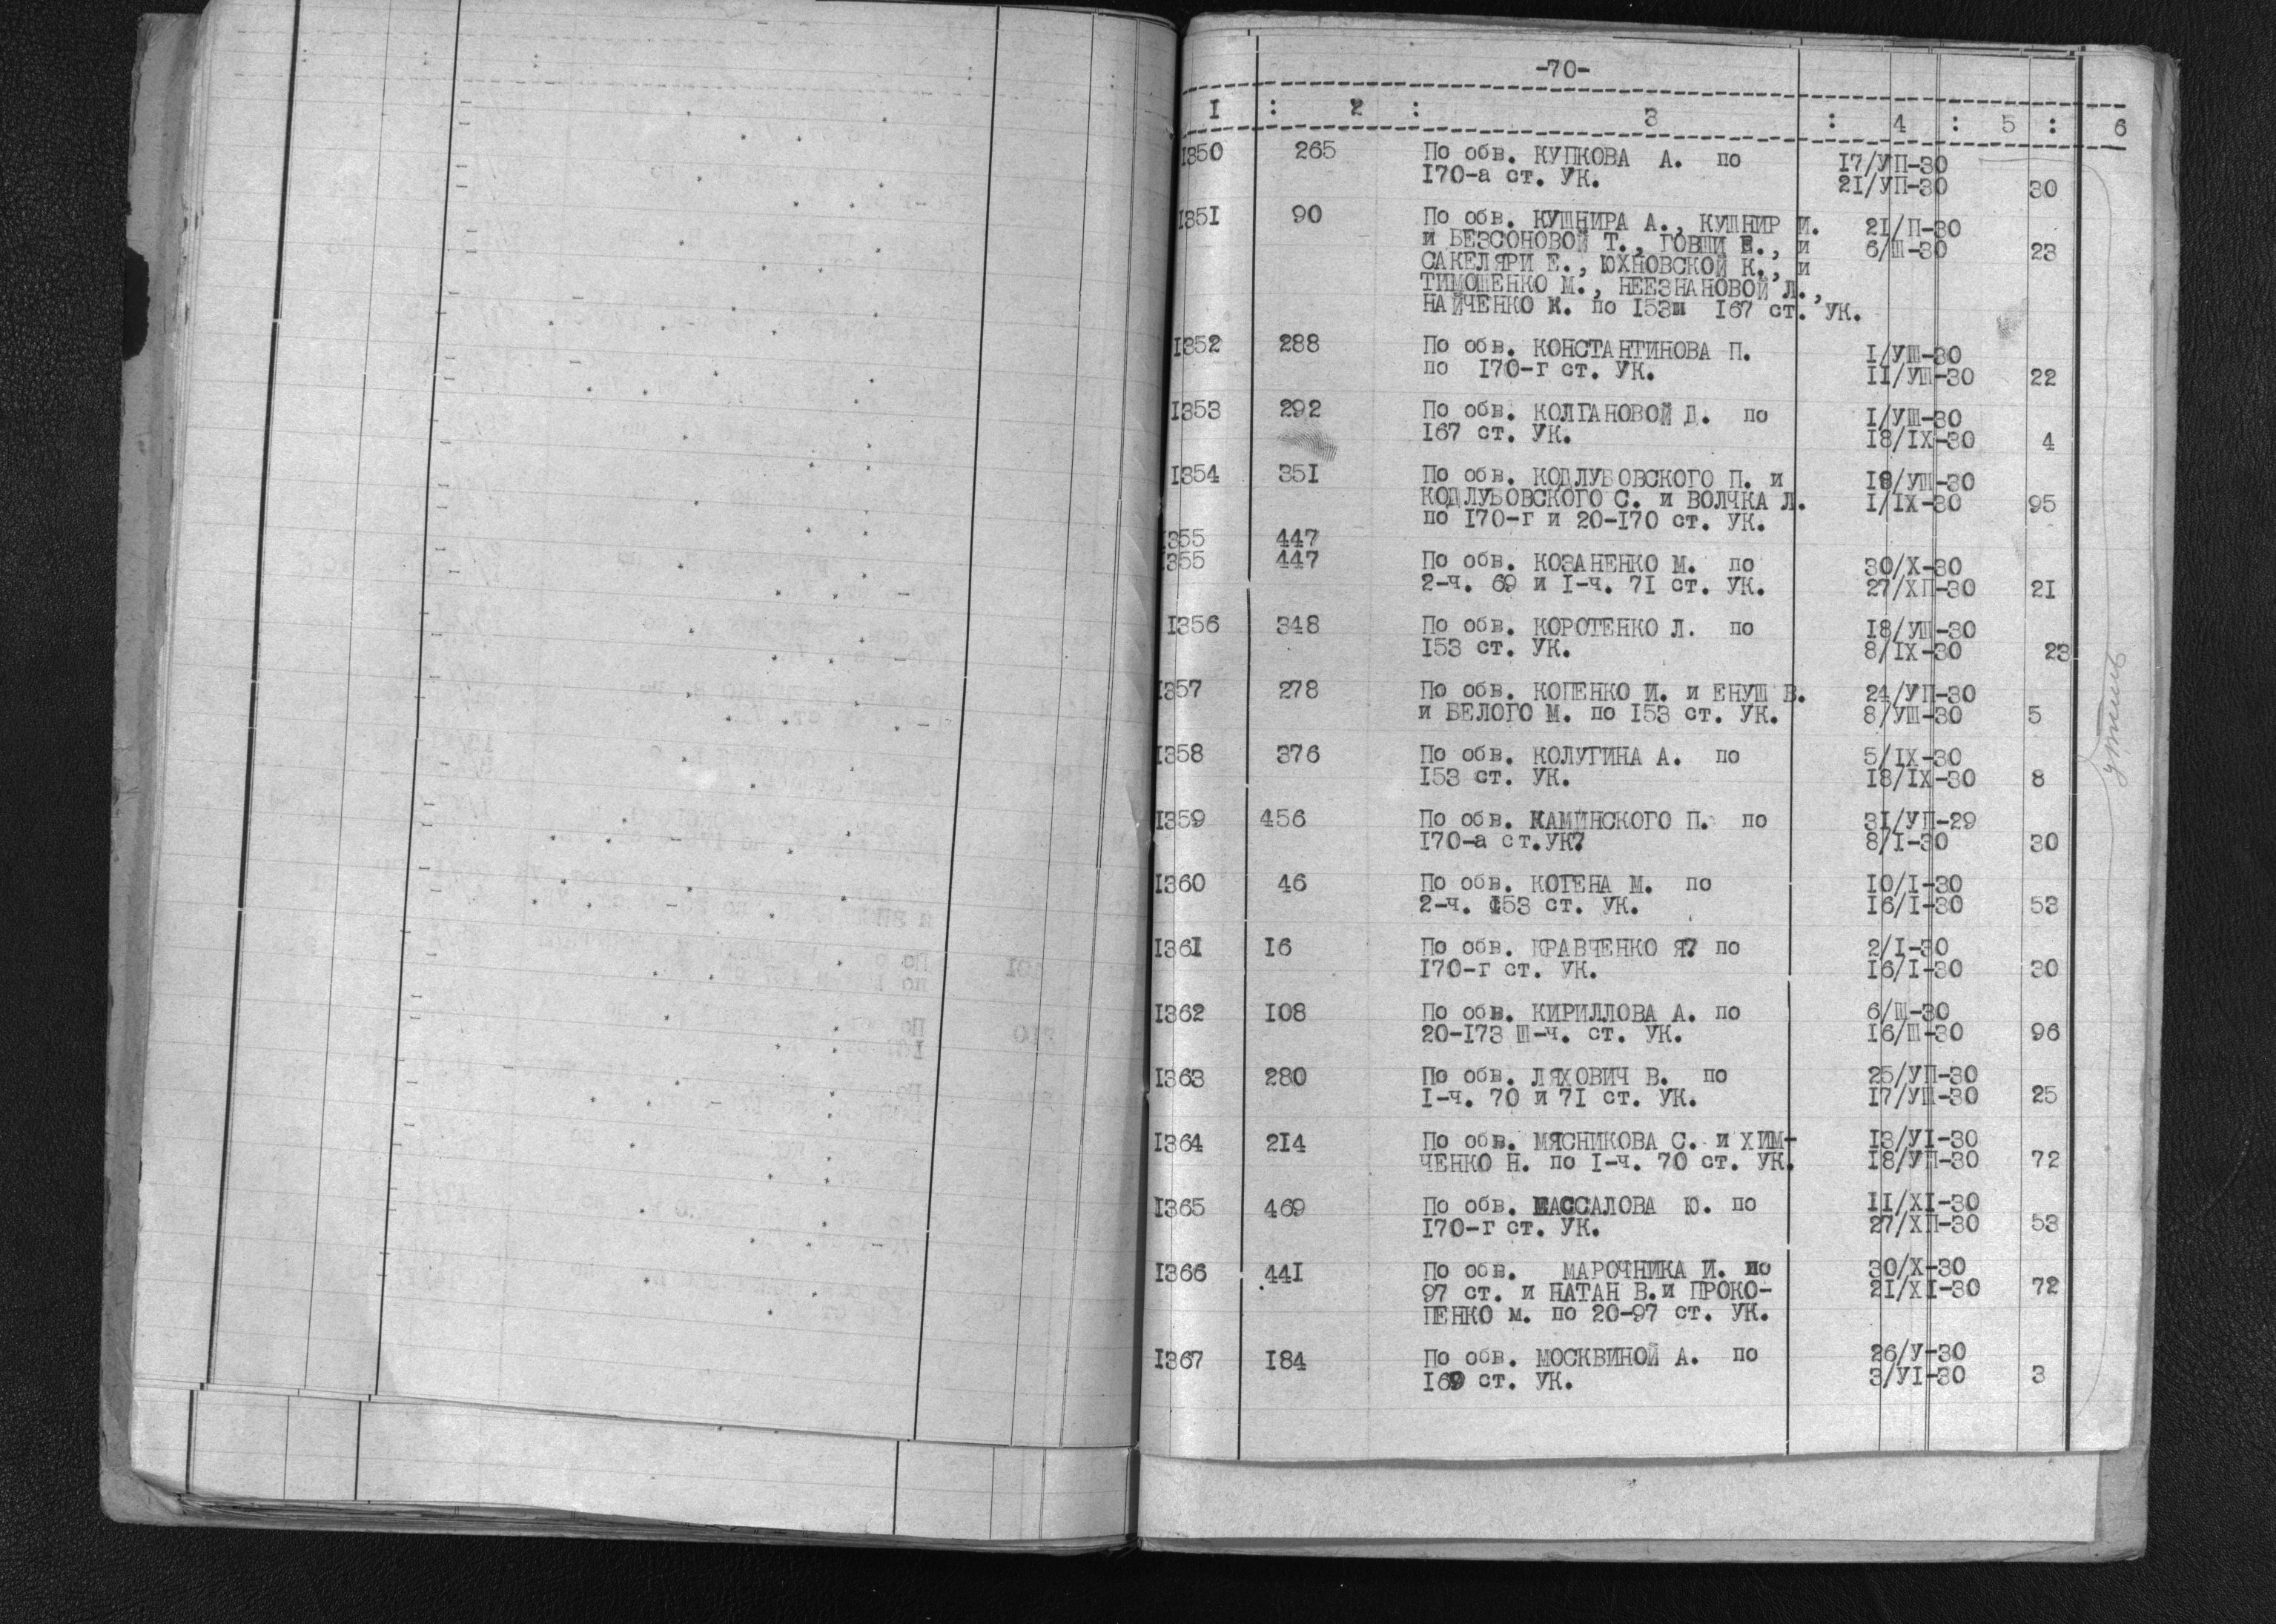 -70-
I : 2 : 3 : 4 : 5 : 6
I350 265 По обв. КУПКОВА А. по 17/УП-30
I70-а ст. УК. 2I/УП-30 30
I35I 90 По обв. КУШНИРА А., КУШНИР И. 2I/П-30
и БЕЗСОНОВОЙ Т., ГОВШИ Е., и 6/Ш-30 23
САКЕЛЯРИ Е., ЮХНОВСКОЙ К., и
ТИМОШЕНКО М., НЕЕЗНАНОВОЙ Л.,
НАЙЧЕНКО К. по I53ш I67 ст. УК.
I352 288 По обв. КОНСТАНТИНОВА П. I/УШ-30
по I70-г ст. УК. II/УШ-30 22
I353 292 По обв. КОЛГАНОВОЙ Д. по I/УШ-30
I67 ст. УК. I8/IХ-30 4
I354 35I По обв. КОДЛУБОВСКОГО П. и I8/УШ-30
КОДЛУБОВСКОГО С. и ВОЛЧКА Л. I/IХ-30 95
по I70-г и 20-I70 ст. УК.
I355 447
I355 447 По обв. КОЗАНЕНКО М. по 30/Х-30
2-ч. 69 и I-ч. 7I ст. УК. 27/ХП-30 2I
I356 348 По обв. КОРОТЕНКО Л. по I8/УШ-30
I53 ст. УК. 8/IХ-30 23
I357 278 По обв. КОПЕНКО И. и ЕНУШ В. 24/УП-30
и БЕЛОГО М. по I53 ст. УК. 8/УШ-30 5
I358 376 По обв. КОЛУГИНА А. по 5/IХ-30
I53 ст. УК. I8/IХ-30 8
I359 456 По обв. КАМИНСКОГО П. по 3I/УП-29
I70-а ст.УК7 8/I-30 30
I360 46 По обв. КОТЕНА М. по I0/I-30
2-ч. I53 ст. УК. I6/I-30 53
I36I I6 По обв. КРАВЧЕНКО Я7 по 2/I-30
I70-г ст. УК. I6/I-30 30
I362 I08 По обв. КИРИЛЛОВА А. по 6/Ш-30
20-I73 Ш-ч. ст. УК. I6/Ш-30 96
I363 280 По обв. ЛЯХОВИЧ В. по 25/УП-30
I-ч. 70 и 7I ст. УК. I7/УШ-30 25
I364 2I4 По обв. МЯСНИКОВА С. и ХИМ- I3/УI-30
ЧЕНКО Н. по I-ч. 70 ст. УК. I8/УП-30 72
I365 469 По обв. МАССАЛОВА Ю. по II/ХI-30
I70-г ст. УК. 27/ХП-30 53
I366 44I По обв. МАРОЧНИКА И. по 30/Х-30
97 ст. и НАТАН В.и ПРОКО- 2I/ХI-30 72
ПЕНКО м. по 20-97 ст. УК.
I367 I84 По обв. МОСКВИНОЙ А. по 26/У-30
I69 ст. УК. 3/УI-30 3
утиль